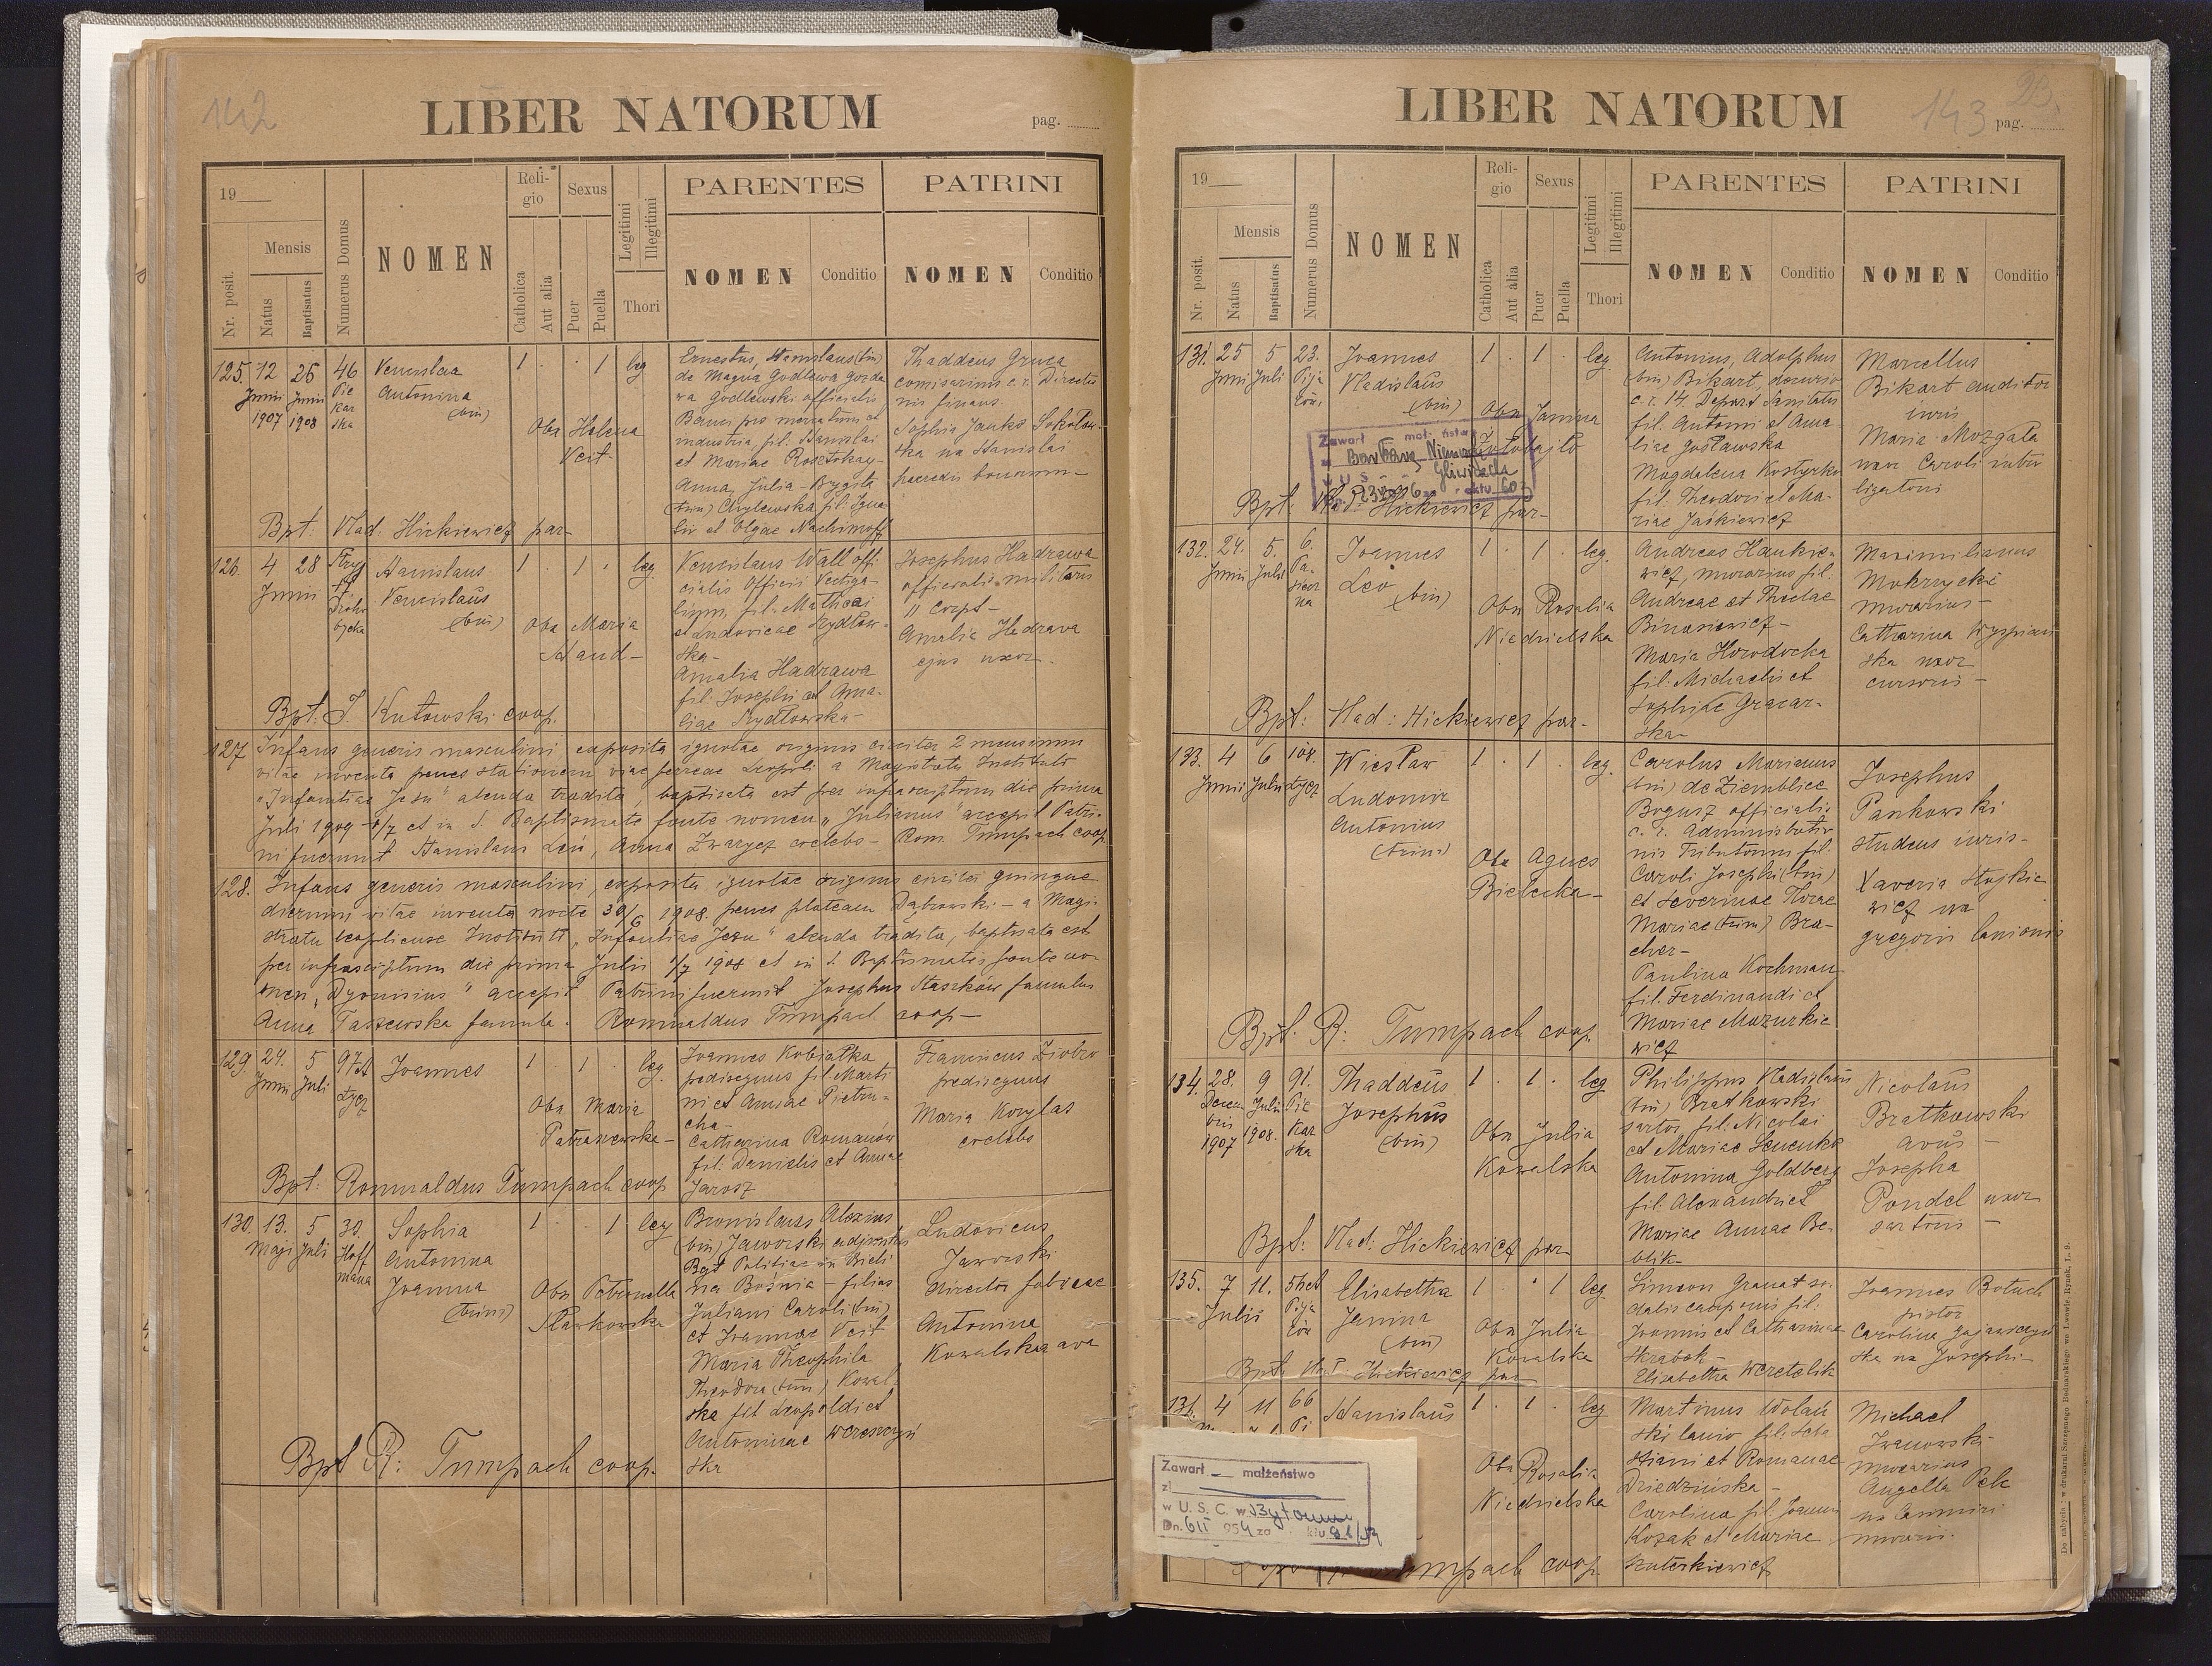 142
LIBER NATORUM
pag.
19
Mensis
Nr. posit.
Natus
Baptisatus
Numerus Domus
NOMEN
Religio
Catholica
Aut alia
Sexus
Puer
Puella
Legitimi
Illegitimi
Thori
PARENTES
NOMEN
Conditio
PATRINI
NOMEN
Conditio
125. 12 26 46
Junii Junii Pie
1907 1908 kar
ska
Venceslaa
Antonina
(bin)
1 . . 1 leg
Obs Helena
Veit
Ernestus, Stanislaus (bin)
de Magna Godlewa Gozda
wa Godlewski officialis
industria, fil. Stanislai
et Mariae
Anna, Julia - Brygita
(trin) Chylewska fil. Igna
tii et Olgae Nachimoff
Thaddeus Gruca
comisarius c. r. Directio
nis finans.
Sophia Sokołow
ska na Stanislai
haeredis bonorum -
Bpt. Vlad. Hickiewicz par-
126. 4 28
Junii
Stanislaus
Venceslaus
(bin)
1 . 1 . leg.
Obs Maria
Venceslaus Wall offi
cialis officii Vectiga-
lium, fil. Mathaei
et Ludovicae Szydłow-
ska-
Amalia Hadrawa
fil. Josephi et Ama-
liae Szydłowska-
Josephus Hadrawa
officialis militaris
11 Corps-
Amalia Hadrawa
ejus uxor.
Bpt. J. Kutowski coop.
127. Infans generis masculini exposita ignotae originis circiter 2 mensium
vitae inventa penes stationem viae ferreae Leopoli a Magistratu Instituto
"Infantiae Jesu" alenda tradita, baptisata est per infrascriptum die prima
Julii 1909 - 1/7 et in S. Baptismate fonte nomen "Julianus" accepit Patri-
ni fuerunt Stanislaus Leń, Anna Zwarycz coelebs - Rom. Tumpach coop.
128. Infans generis masculini, exposita ignotae originis circiter quinque
dierum vitae inventa nocte 30/6 1908. penes plateam Dąbrowski - a Magi-
stratu leopoliense Instituti "Infantiae Jesu" alenda tradita, baptisata est
per infrascriptum die prima Julii 1/7 1908 et in S. Baptismatis fonte no-
men "Dyonisius" accepit Patrini fuerunt Josephus Staszków famulus
Anna Taszewska famula. Romualdus Tumpach coop-
129. 24. 5 97A
Junii Juli Łycz
Joannes
1 . 1 . leg.
Obs Maria
Patraszewska-
Joannes Kobiałka
pedisequus fil. Marti
ni et Annae Pietru-
cha-
Catharina Romanów
fil. Danielis et Annae
Jarosz
Franciscus Ziobro
pedisequus
Maria Korylas
coelebs
Bpt: Romualdus Tumpach coop
130. 13. 5 30.
Maji Juli Hoff
mana
Sophia
Antonina
Joanna
(trin)
1 . . 1 leg
Obs Petronella
Sławkowska
Bronislaus Alexius
(bin) Jaworski adjunctus
Politiae in Bieli
na Bośnia - filius
Juliani Caroli (bin)
et Joannae Veit
Maria Theophila
Theodora (trin) Kowal
ska fil Leopoldi et
Antoninae Wereszczyń
ska
Ludovicus
Jaworski
Director fabricae
Antonina
Kowalska ava
Bpt R: Tumpach coop.
143
23.
LIBER NATORUM
pag.
19
Mensis
Nr. posit.
Natus
Baptisatus
Numerus Domus
NOMEN
Religio
Catholica
Aut alia
Sexus
Puer
Puella
Legitimi
Illegitimi
Thori
PARENTES
NOMEN
Conditio
PATRINI
NOMEN
Conditio
131. 25 5 23.
Junii Juli Pija
rów.
Joannes
Vladislaus
(bin)
1 . 1 . leg
Obs Janina
Zawarł
Barbarą
U S
Antonius, Adolphus
(bin) Bikart, decurio
c. r. 14. Depart Sanitatis
fil. Antonii et Ama-
liae Godławska
Magdalena Kostyrko
fil. Theodori et Ma-
riae Jaśkiewicz
Marcellus
Bikart auditor
iuris
Maria Mozgała
uxor Caroli
ligatoris
Bpt. Vlad. Hickiewicz par-
132. 24. 5. 6.
Junii Juli Pa-
siecz
na
Joannes
Leo (bin)
1 . 1 . leg.
Obs Rosalia
Niedzielska
Andreas Haukie-
wicz, murarius fil.
Andreae et Theclae
Binasiewicz-
Maria Horodocka
fil. Michaelis et
Sophiae Gracar-
ska-
Maximilianus
Mokrzycki
murarius-
Catharina Wyspiań
ska uxor
cursoris-
Bpt: Vlad: Hickiewicz par-
133. 4 6 108.
Junii Julii Łycz
Wiesław
Ludomir
Antonius
(trin)
1 . 1 . leg.
Obs Agnes
Bielecka-
Carolus Marianus
(bin) de Ziemblice
Bogusz officialis
c. r. Administratio
nis Tributorum fil.
Caroli Josephi (bin)
et Severinae Florae
Mariae (trin) Bra-
cher-
Paulina Kochman
fil. Ferdinandi et
Mariae Mazurkie
wicz
Josephus
Pankowski
studens iuris-
Xaveria Stojkie
wicz ux
Gregorii lanionis
Bpt. R: Tumpach coop.
134. 28. 9 91.
Decem Julii Pie
bris 1908. kar
1907 ska
Thaddeus
Josephus
(bin)
1 . 1 . leg
Obs Julia
Kowalska
Philippus Vladislaus
(bin) Bratkowski
sartor, fil. Nicolai
et Mariae
Antonina Goldberg
fil. Alexandri et
Mariae Annae Be-
blik-
Nicolaus
Bratkowski
avus-
Josepha
Pondel uxor
sartoris-
Bpt: Vlad: Hickiewicz par
135. 7 11.
Julii Pija
rów
Elisabetha
Janina
(bin)
1 . . 1 leg.
Obs Julia
Kowalska
Simeon Granat so-
dalis cauponis fil:
Joannis et Catharinae
Skrabek-
Elisabetha
Joannes
pistor
Carolina
ska na Josephi-
Bpt: Vlad. Hickiewicz par
136. 4 11 66
Stanislaus
1 . 1 . leg
Obs Rosalia
Niedzielska
Martinus Wolań
ski lanio fil: Seba
stiani et Romanae
Dziedzińska-
Carolina fil. Joannis
Kozak et Mariae
Michael
Iwanowski
murarius
Angella Pelc
ux Casimiri
muraris.
Zawarł małżeństwo
z
w U. S. C. w Bytomiu
Dn. 6 II 954 za
Tumpach coop.